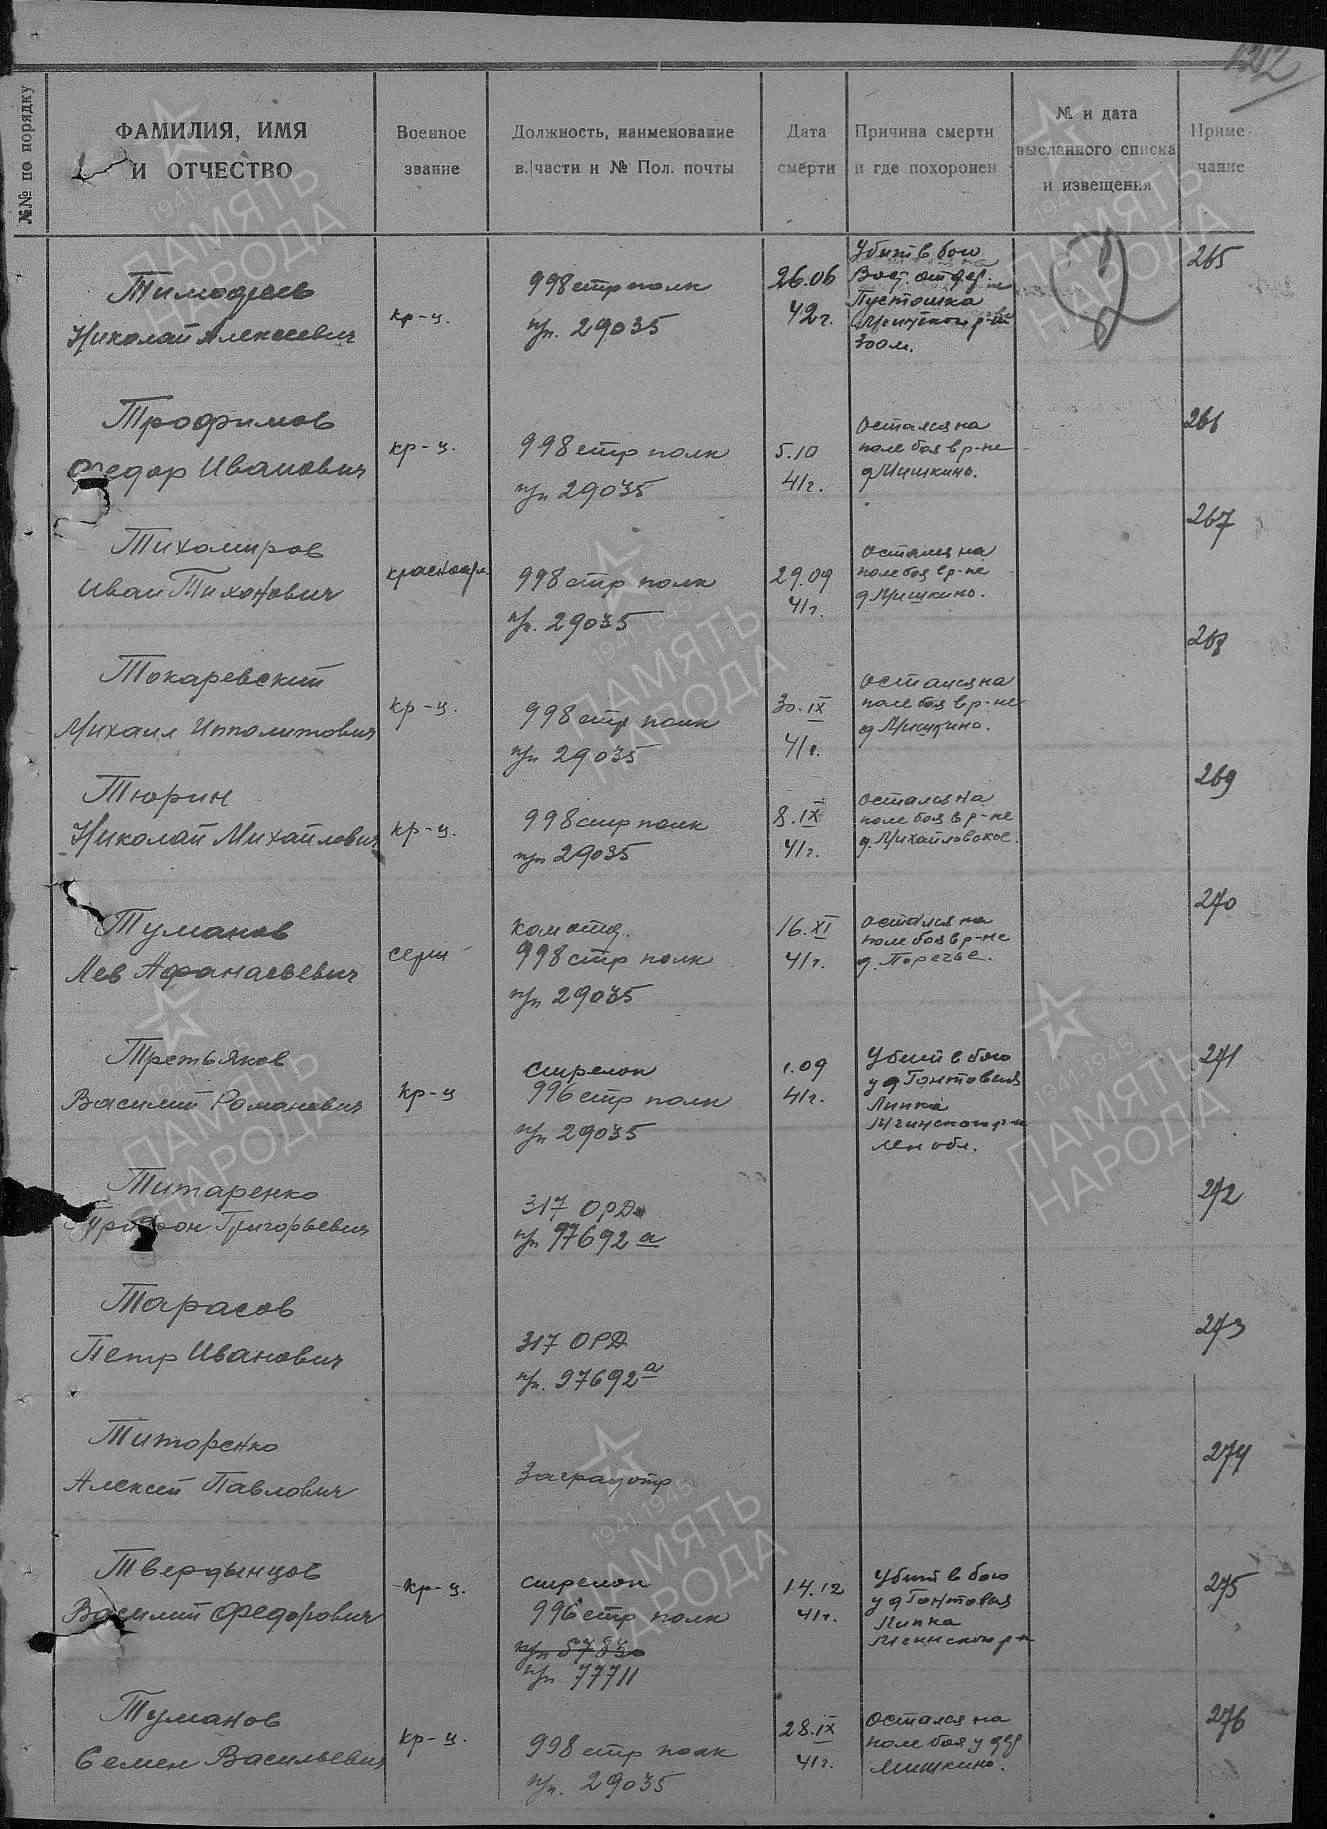 1212
№№ по порядку
ФАМИЛИЯ, ИМЯ
И ОТЧЕСТВО
Военное
звание
Должность, наименование
в. части и № Пол. почты
Дата
смерти
Причина смерти
и где похоронен
№ и дата
высланного списка
и извещения
Приме
чание
Тимофеев
Николай Алексеевич
кр-ц.
998 стр полк
п/п. 29035
26.06
42 г.
Убит в бою
Вост. от дер.
Пустошка
Мгинского р-на
300 м.
265
Трофимов
Федор Иванович
кр-ц.
998 стр полк
п/п 29035
5.10
41 г.
Остался на
поле боя в р-не
д Мишкино.
266
Тихомиров
Иван Тихонович
красноарм.
998 стр полк
п/п. 29035
29.09
41 г.
Остался на
поле боя в р-не
д Мишкино.
267
Токаревский
Михаил Ипполитович
кр-ц.
998 стр полк
п/п 29035
30.IX
41 г.
Остался на
поле боя в р-не
д Мишкино.
268
Тюрин
Николай Михайлович
кр-ц.
998 стр полк
п/п 29035
8.IX
41 г.
Остался на
поле боя в р-не
д. Михайловское.
269
Туманов
Лев Афанасьевич
серж
ком отд.
998 стр полк
п/п 29035
16.XI
41 г.
Остался на
поле боя в р-не
д. Поречье.
270
Третьяков
Василий Романович
кр-ц
стрелок
996 стр полк
п/п 29035
1.09
41 г.
Убит в бою
у д Гонтовая
Липка
Мгинского р-н
Лен обл.
271
Титаренко
Трифон Григорьевич
317 ОРД
п/п 97692 а
272
Тарасов
Петр Иванович
317 ОРД
п/п. 97692 а
273
Титоренко
Алексей Павлович
Заградотр
274
Твердынцов
Василий Федорович
кр-ц.
стрелок
996 стр полк
п/п 77711
14.12
41 г.
Убит в бою
у д Гонтовая
Липка
Мгинского р н
275
Туманов
Семен Васильевич
кр-ц.
998 стр полк
п/п. 29035
28.IX
41 г.
Остался на
поле боя у дер
Мишкино.
276
1941 1945
ПАМЯТЬ
НАРОДА